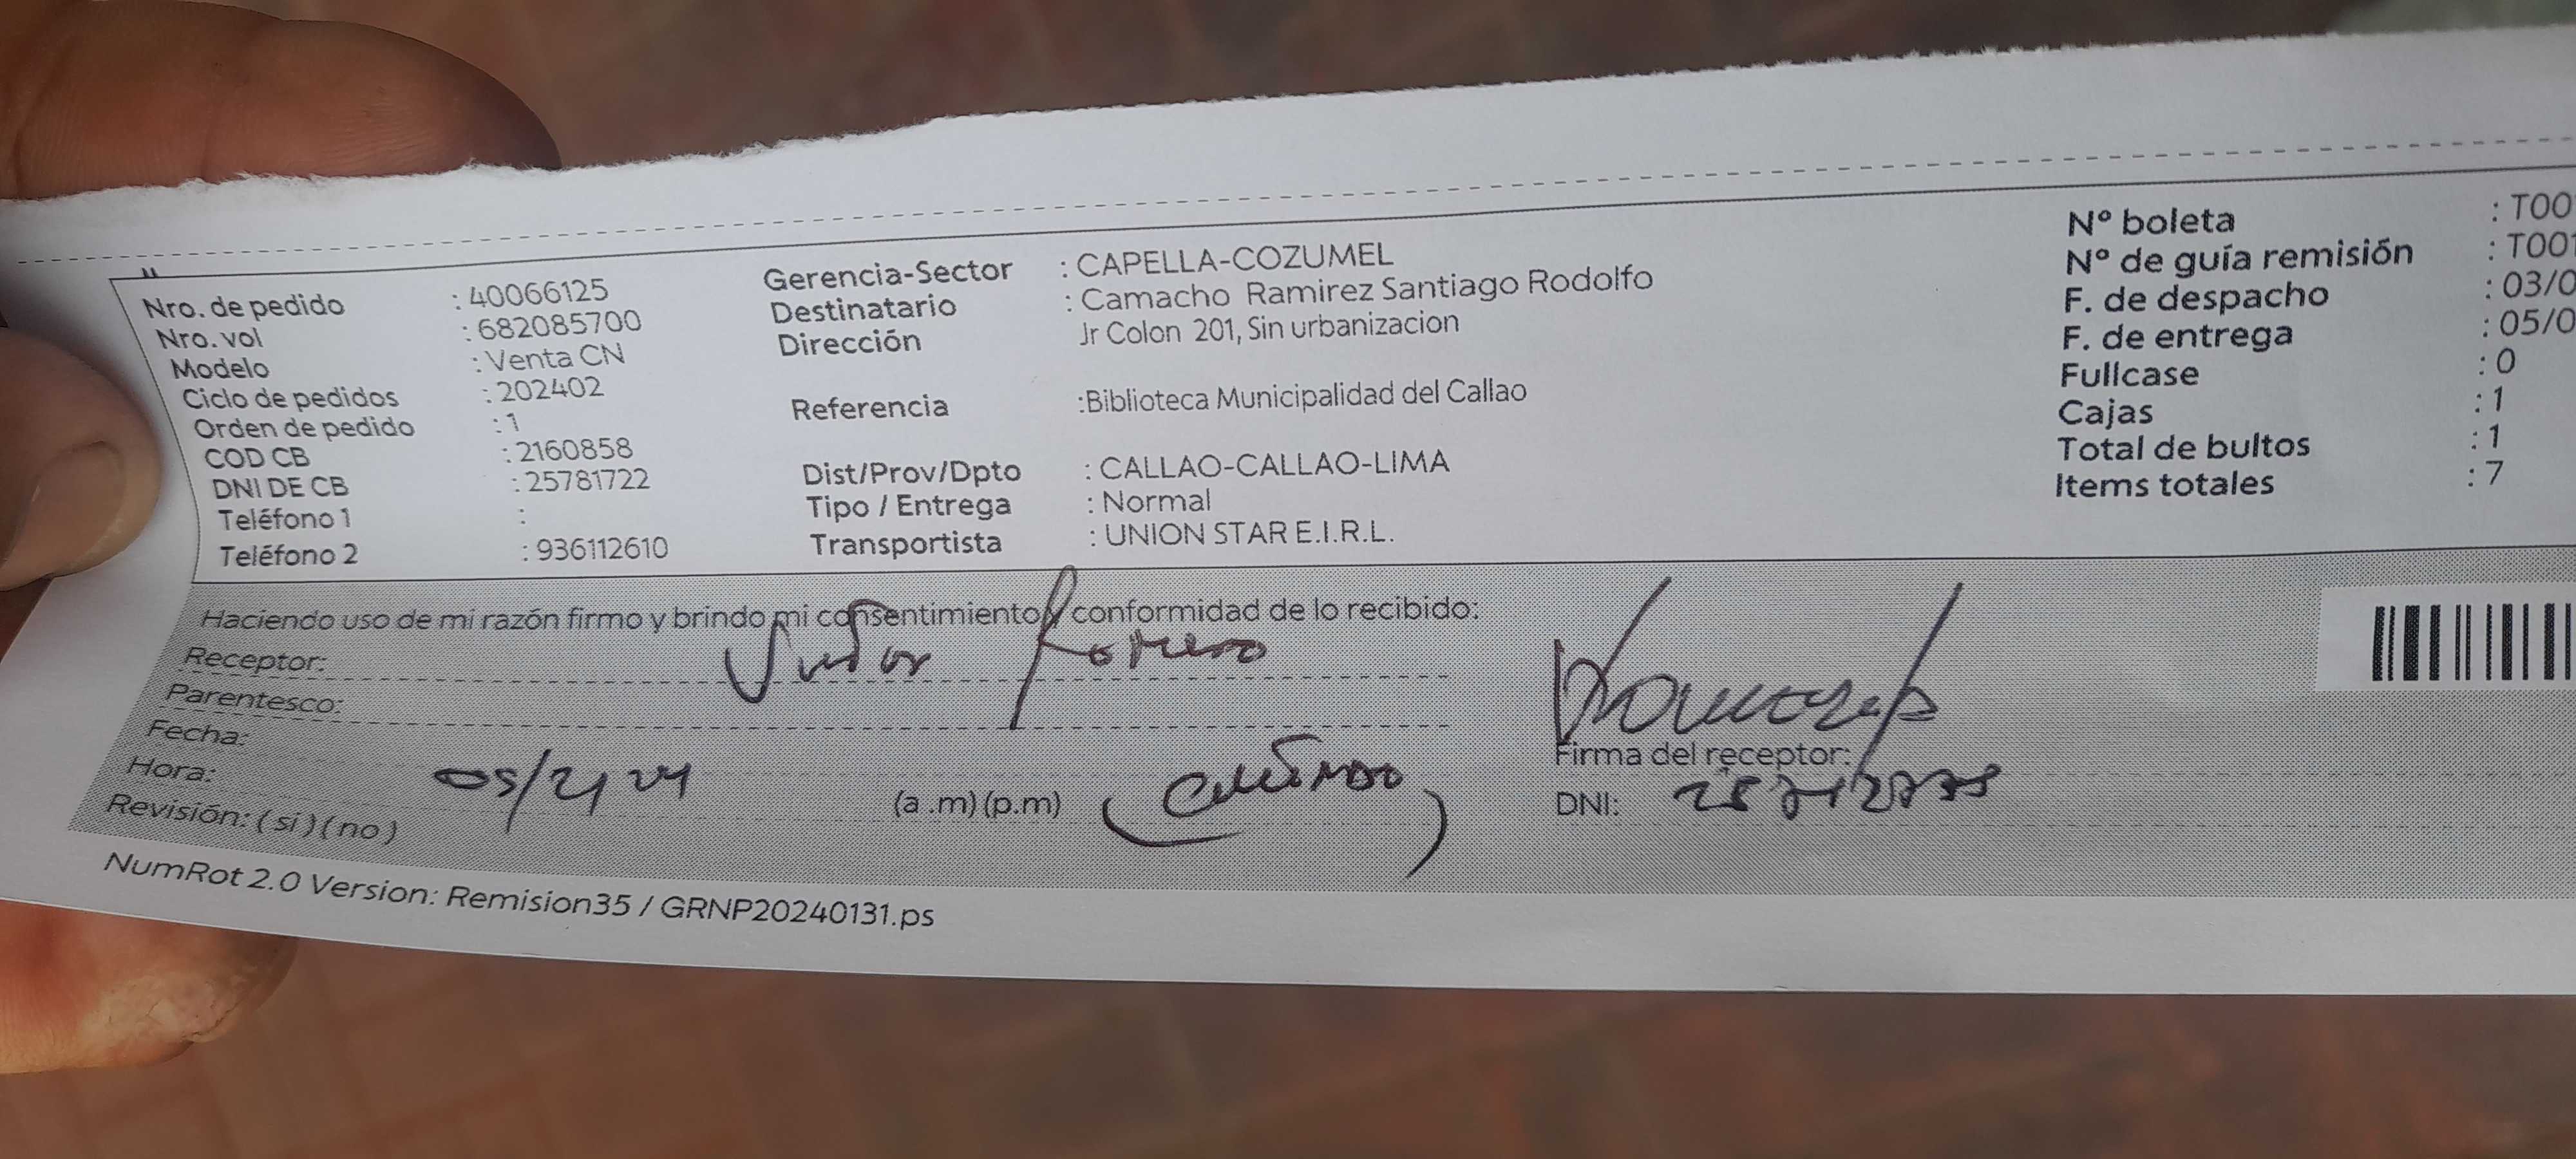 Nro. de pedido : 40066125
Nro. vol : 682085700
Modelo : Venta CN
Ciclo de pedidos : 202402
Orden de pedido : 1
COD CB : 2160858
DNI DE CB : 25781722
Teléfono 1 :
Teléfono 2 : 936112610
Gerencia-Sector : CAPELLA-COZUMEL
Destinatario : Camacho Ramirez Santiago Rodolfo
Dirección Jr Colon 201, Sin urbanizacion
Referencia :Biblioteca Municipalidad del Callao
Dist/Prov/Dpto : CALLAO-CALLAO-LIMA
Tipo / Entrega : Normal
Transportista : UNION STAR E.I.R.L.
Nº boleta : T00
Nº de guía remisión : T001
F. de despacho : 03/0
F. de entrega : 05/0
Fullcase : 0
Cajas : 1
Total de bultos : 1
Items totales : 7
Haciendo uso de mi razón firmo y brindo mi consentimiento y conformidad de lo recibido:
Receptor: Romero
Parentesco:
Fecha:
Hora: 05/2/24
Revisión: ( si ) ( no )
(a .m) (p.m)
Firma del receptor:
DNI:
NumRot 2.0 Version: Remision35 / GRNP20240131.ps